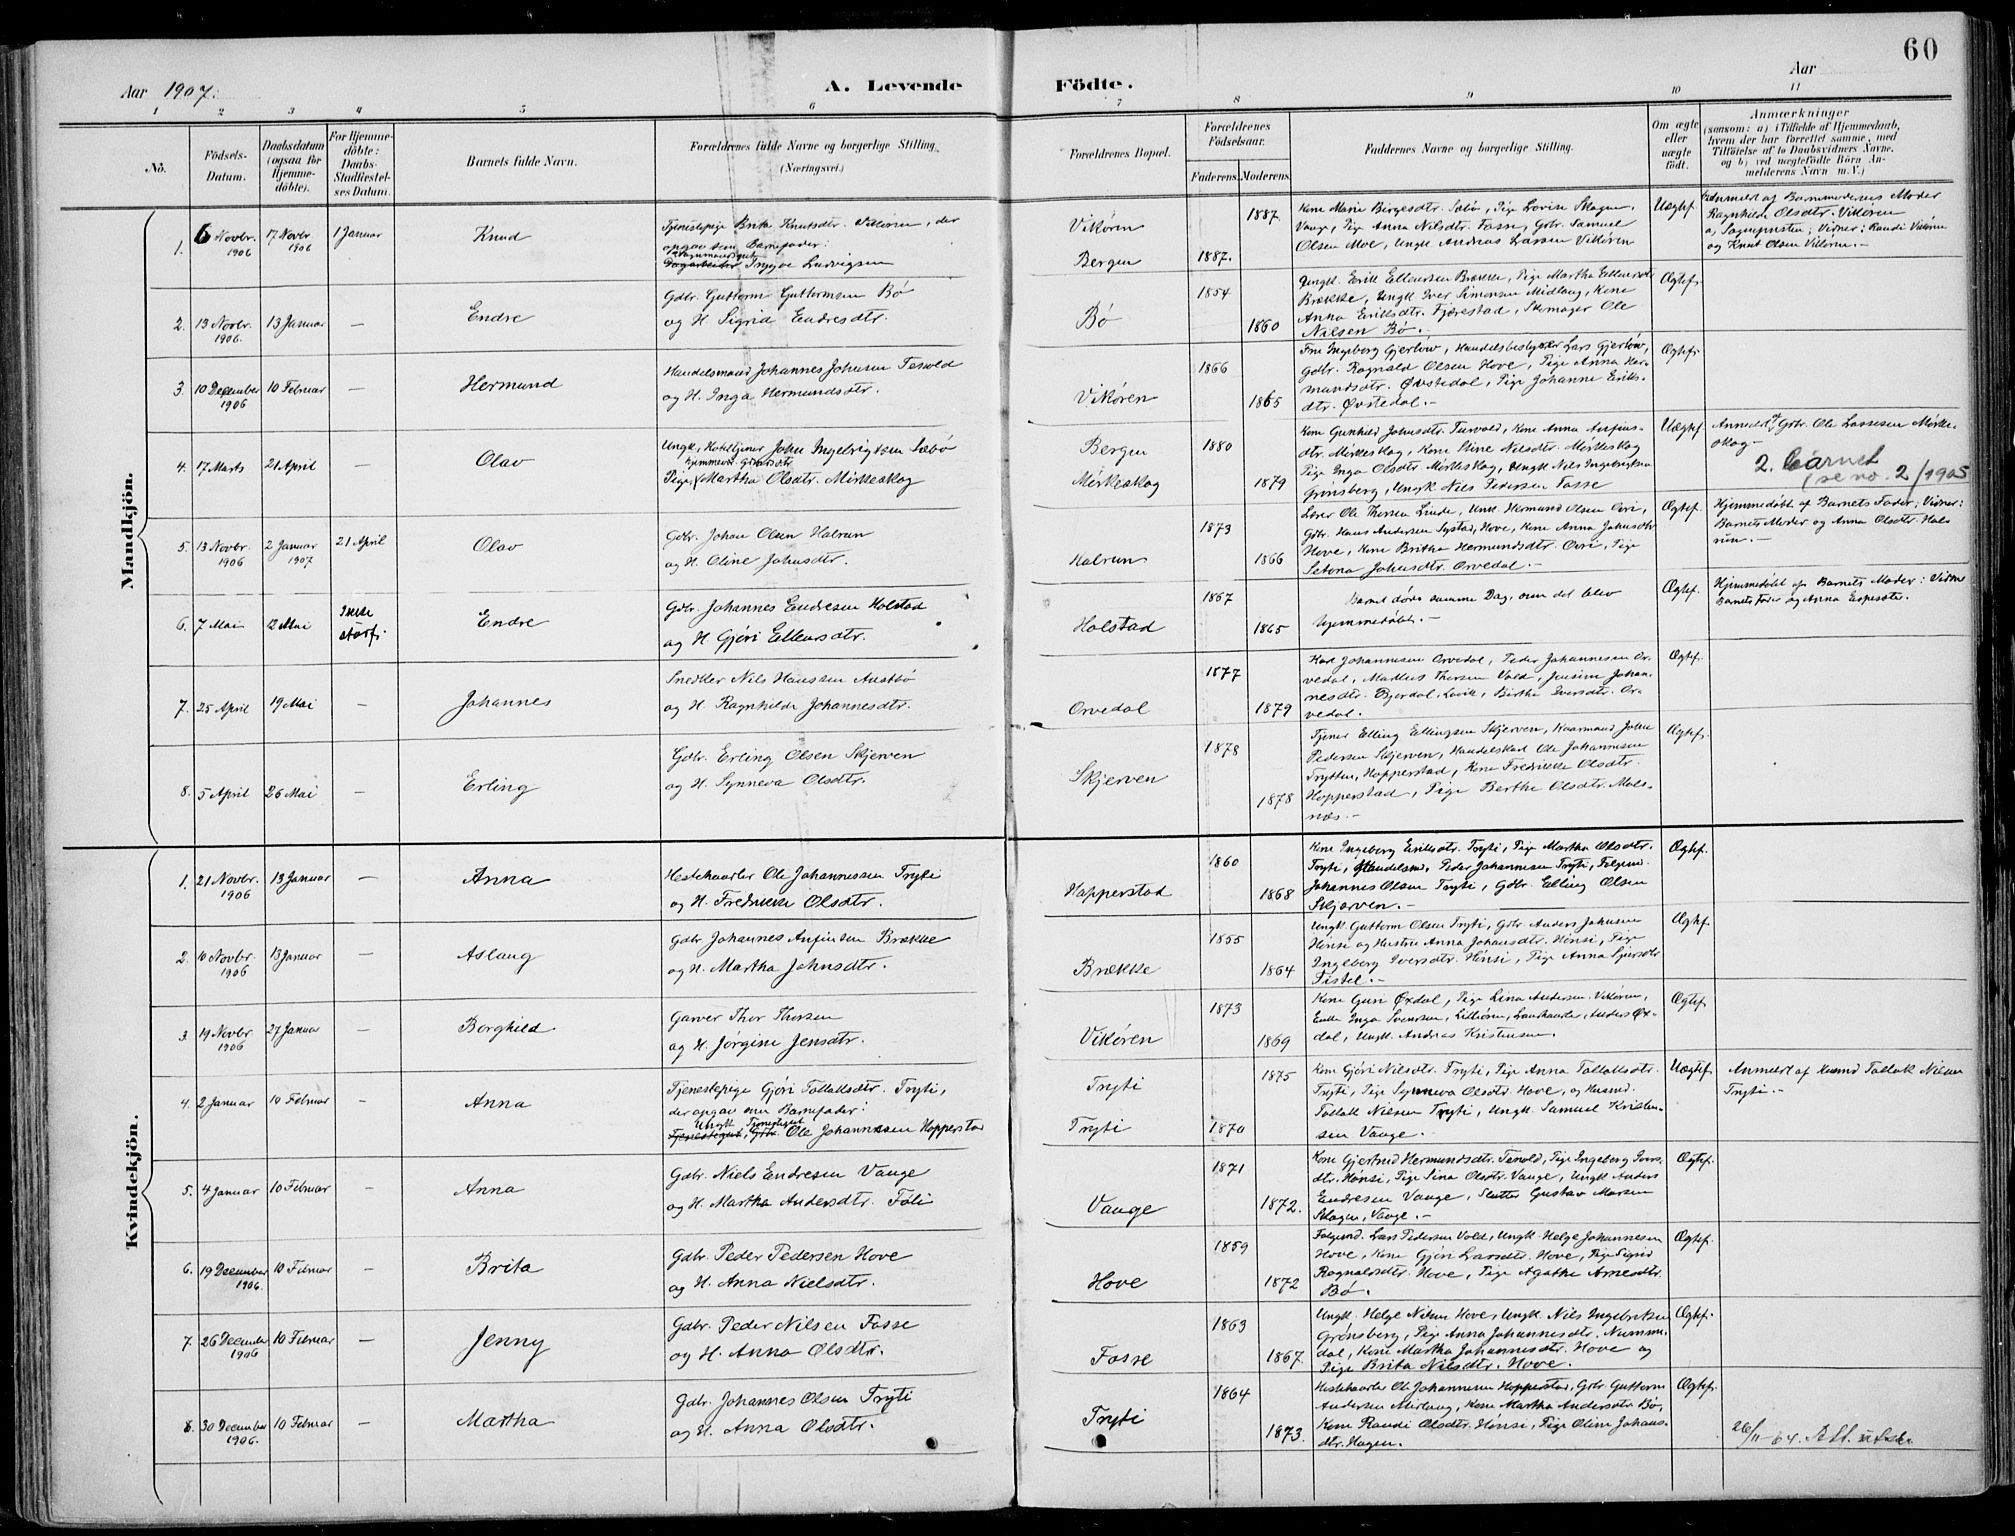 60
Aar 1907.
A. Levende Födte.
Aar
1 2 3 4 5 6 7 8 9 10 11
No.
Födsels-Datum.
Daabsdatum (ogsaa for Hjemme-döbte).
For Hjemme-döbte: Daabs-Stadfæstel-ses Datum.
Barnets fulde Navn.
Forældrenes fulde Navne og borgerlige Stilling (Næringsvei.)
Forældrenes Bopæl.
Forældrenes Födselsaar.
Faderens. Moderens.
Faddernes Navne og borgerlige Stilling.
Om ægte eller uægte födt.
Anmærkninger
(saasom: a) i Tilfælde af Hjemmedaab, hvem der har forrettet samme, med Tilföielse af to Daabsvidners Navne, og b) ved uægtefödte Börn An-melderens Navn m. V.)
Mandkjön.
1. 6 Novbr. 1906 17 Novbr. 1906 1 Januar Knud
Tjenestepige Brita Knutsdtr. Vikören, der
opgav som Barnefader:
Tryggve Ludvigsen
Vikören
Bergen
1887
1887.
Kone Marie Birgesdtr. Sæbö, Pige Lovise Skagen,
Vange, Pige Anna Nilsdtr. Fosse, Gbr. Samuel
Olsen Moe, Ungk. Andreas Larsen Vikören
Uægtef.
Anmeldt af Barnemoderens Moder
Ragnhilda Olsdtr. Vikören
a, Sognepresten; Vidner: Randi Vikören
og Knut Olsen Vikören.-
2. 13 Novbr. 1906. 13 Januar — Endre
Gdbr. Guttorm Guttormsen Bö
og H. Sigrid Endresdtr.
Bö
1854
1860
Ungk. Erik Ellensen Brække, Pige Martha Ellensdtr
Brække, Ungk Iver Simonsen Midlang, Kone
Anna Eriksdtr. Fjærestad, Skomager Ole
Nilsen Bö.-
Ægtef.
3. 10 December 1906 10 Februar — Hermund
Handelsmand Johannes Johnsen Tenold
og H. Inga Hermundsdtr.
Vikören
1866
1865
Frue Ingeborg Gjerlöw, Handelsbestyrer Lars Gjerlöw,
Gdbr. Ragnald Olsen Hove, Pige Anna Her-
mundsdtr. Øvstedal, Pige Johanne Eriks-
dtr. Øvstedal.-
Ægtef.
4. 17 Marts 21 April — Olav
Ungk, Hoteltjener John Ingebrigtsen Sæbö
Pige Martha Olsdtr. Mörkeskog
Bergen
Mörkeskog
1880
1879
Kone Gunhild Johnsdtr. Turvold, Kone Anna Anfins-
dtr. Mörkeskog, Kone Stine Nilsdtr. Mörkeskog
Pige Inga Olsdtr. Mörkeskog, Ungk Nils Ingebrigtsen
Grönsberg, Ungk Nils Pedersen Fosse
Uægtef
Anmeldt af Gbr. Ole Lassesen Mörke-
skog-
2. barnet
(se no. 2/1905
5. 13 Novbr. 1906 2 Januar 1907 21 April Olav
Gdbr. Johan Olsen Halrun
og H. Oline Johnsdtr.
Halrun
1873
1866
Lærer Ole Thorsen Linde, Ungk. Hermund Olsen Ovri,
Gdbr. Hans Andersen Systad, Hove, Kone Anna Johnsdtr
Hove, Kone Britha Hermundsdtr. Ovri, Pige
Setona Johnsdtr. Orvedal.-
Ægtef.
Hjemmedöbt af Barnets Fader; Vidner:
Barnets Moder og Anna Olsdtr. Hal-
run.-
6. 7 Mai 12 Mai Endre
Gdbr. Johannes Endresen Holstad
og H. Gjöri Ellensdtr.
Holstad
1867
1865
Barnet döde samme Dag, som det blev
hjemmedöbt.-
Ægtef.
Hjemmedöbt af Barnets Moder: Vidner
Barnets Fader og Anna Espesdtr.
7. 25 April 19 Mai — Johannes
Snedker Nils Hanssen Austbö
og H. Ragnhilde Johannesdtr.
Orvedal
1877
1879
Karl Johannesen Orvedal, Peder Johannesen Or-
vedal, Mathis Thorsen Vold, Jensine Johan-
nesdtr. Bjordal, Lavik, Birthe Iversdtr. Or-
vedal.
Ægtef.
8. 5 April 26 Mai — Erling
Gdbr. Erling Olsen Skjerven
og H. Synneva Olsdtr.
Skjerven
1878
1878
Tjener Elling Ellingsen Skjerven, Kaarmand John
Pedersen Skjerven, Handelskarl Ole Johannesen
Trytten, Hopperstad, Kone Fredrikke Olsdtr.
Hopperstad, Pige Berthe Olsdtr. Mols-
næs.-
Ægtef.
Kvindekjön.
1. 21 Novbr. 1906 13 Januar — Anna
Hestehandler Ole Johannessen Tryti
og H. Fredrikke Olsdtr.
Hopperstad
1860
1868
Kone Ingeborg Eriksdtr. Tryti, Pige Martha Olsdtr.
Tryti, Handelsmd. Peder Johannesen Tryti, Folgemd.
Johannes Olsen Tryti, Gdbr. Elling Olsen
Skjerven.-
Ægtef.
2. 10 Novbr. 1906 13 Januar — Aslaug
Gdbr Johannes Anfinsen Brække
og H. Martha Johnsdtr.
Brække
1855
1864
Ungk. Guttorm Olsen Tryti, Gbr. Anders Johnsen
Hönsi og Hustru Anna Johansdtr. Hönsi, Pige
Ingeborg Iversdtr. Hönsi, Pige Anna Sjursdtr
Fistel.-
Ægtef.
3. 19 Novbr 1906 27 Januar — Borghild
Garver Thor Thorsen
og H. Jörgine Jensdtr.
Vikören
1873
1869
Kone Guri Øxdal, Pige Lina Andersen Vikören,
Enke Inga Svensen, Anders Øx-
dal, Ungk. Andreas Kristensen.
Ægtef.
4. 2 Januar 10 Februar — Anna
Tjenestepige Gjöri Tollaksdtr. Tryti,
der opgav som Barnefader:
Ungk Tjenestegut
Ole Johannessen Hopperstad
Tryti
Tryti
1875
1870
Kone Gjöri Nilsdtr. Tryti, Pige Anna Tollaksdtr.
Tryti, Pige Synneva Olsdtr. Hove, og Husmd.
Tollak Nielsen Tryti, Ungk. Samuel Kristen-
sen Vange.
Uægtef.
Anmeldt af Husmd Tollak Nielsen
Tryti.-
5. 4 Januar 10 Februar — Anna
Gdbr. Niels Endresen Vange
og H. Martha Andersdtr. Föli
Vange
1871
1872.
Kone Gjertrud Hermundsdtr. Tenold, Pige Ingeborg Ivers-
dtr. Hönsi, Pige Sina Olsdtr. Vange, Ungk Anders
Endresen Vange, Slutter Gustav Marsen
Skagen, Vange.-
Ægtef.
6. 19 December 1906. 10 Februar — Brita
Gdbr. Peder Pedersen Hove
og H. Anna Nielsdtr.
Hove
1859
1872
Folgemd. Lars Pedersen Vold, Ungk. Helge Johannesen
Hove, Kone Gjöri Larsdtr. Hove, Pige Sigrid
Ragnaldsdtr. Hove, Pige Agathe Arnesdtr.
Bö.
Ægtef.
7. 26 December 1906 10 Februar — Jenny
Gdbr. Peder Nilsen Fosse
og H. Anna Olsdtr.
Fosse
1863
1867.
Ungk. Helge Nilsen Hove, Ungk. Nils Ingebriktsen
Grönsberg, Pige Anna Johannesdtr. Numme-
dal, Kone Martha Johannesdtr. Hove og
Pige Brita Nilsdtr. Hove.
Ægtef.
8. 30 December 1906. 10 Februar — Martha
Gdbr. Johannes Olsen Tryti
og H. Anna Olsdtr.
Tryti
1864
1873.
Hestehandler Ole Johannesen Hopperstad, Gbr. Guttorm
Andersen Midlang, Kone Martha Andersdtr Bö,
Kone Randi Olsdtr. Hönsi, Pige Oline Johans-
dtr. Hagen.
Ægtef.
26/11-64. Att. utst.